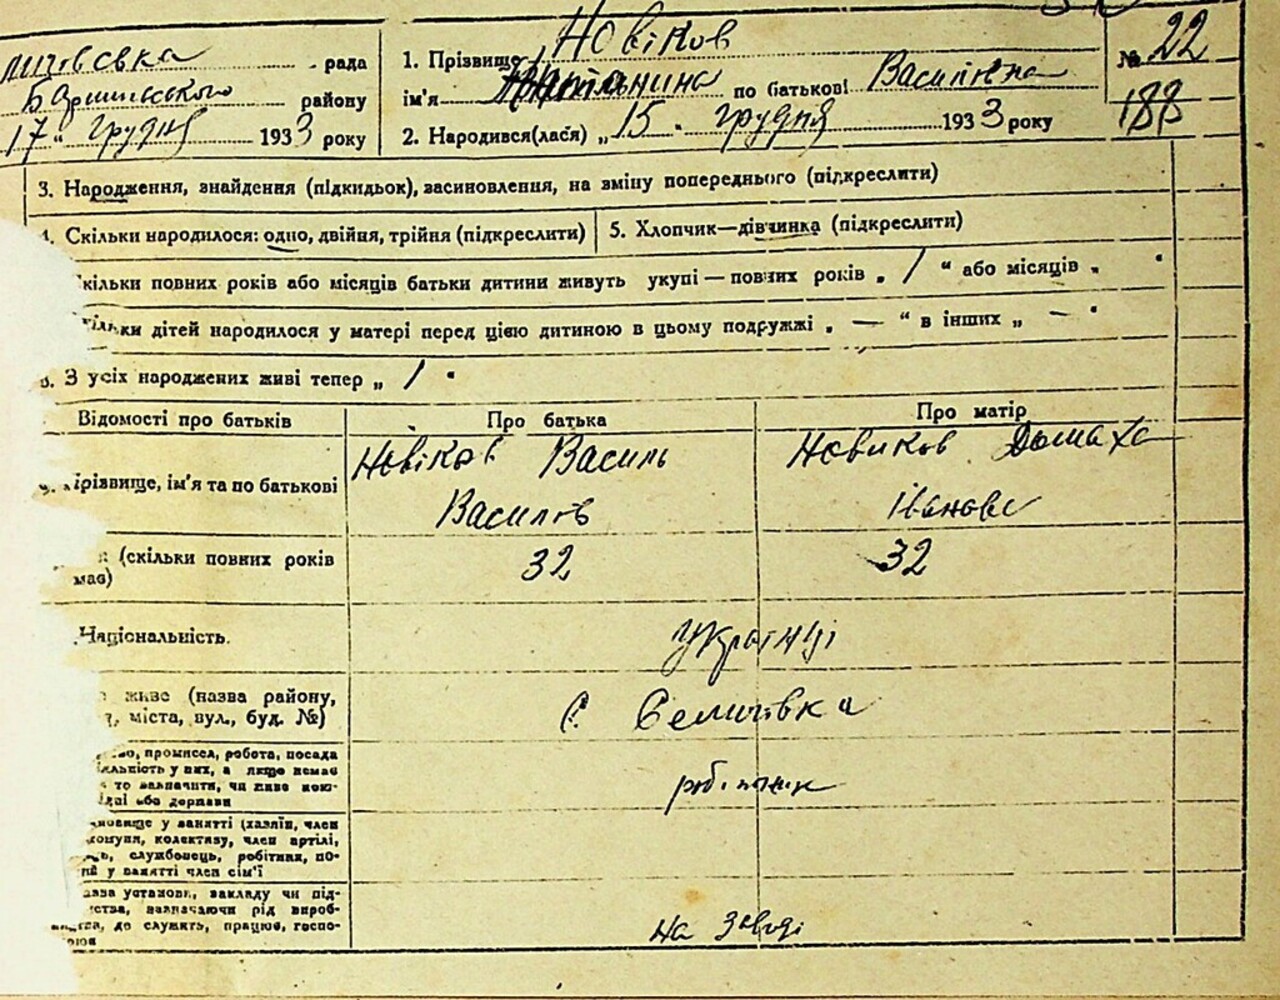 рада
1. Прізвище Новіков
№ 22
Баришівського району
ім'я по батькові Василівна
188
17 " грудня 1933 року
2. Народився(лася) „ 15 " грудня 1933 року
3. Народження, знайдення (підкидьок), засиновлення, на зміну попереднього (підкреслити)
4. Скільки народилося: одно, двійня, трійня (підкреслити)
5. Хлопчик—дівчинка (підкреслити)
кільки повних років або місяців батьки дитини живуть укупі — повних років „ 1 “ або місяців „ "
ільки дітей народилося у матері перед цією дитиною в цьому подружжі „ — “ в інших „ — "
З усіх народжених живі тепер „ 1 "
Відомості про батьків
Про батька
Про матір
різвище, ім'я та по батькові
Новіков Василь
Василів
Новиков Домаха
Іванов
(скільки повних років
має)
32
32
Національність.
Українці
живе (назва району,
міста, вул., буд. №)
С. Селичівка
во, промисел, робота, посада
яльність у них, а якщо немає
то зазначити, чи живе
або держави
робітник
новище у занятті (хазяїн, член
комуни, колективу, член артілі,
службовець, робітник, по-
й у занятті член сім'ї
зва установи, закладу чи під-
ства, зазначаючи рід вироб-
де служить, працює, госпо-
рює
на заводі